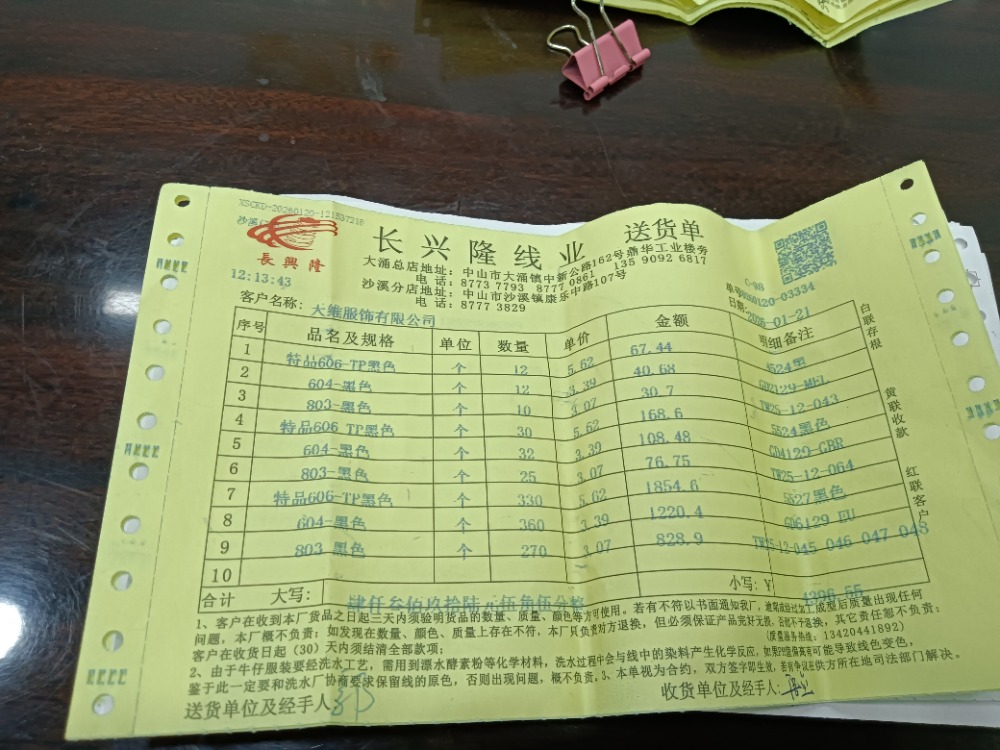 XSCKD-20260120-121837218
长興隆
12:13:43
长兴隆线业 送货单
大涌总店地址：中山市大涌镇中新公路162号鼎华工业楼旁
电话：8773 7793 8777 0861 135 9092 6817
沙溪分店地址：中山市沙溪镇康乐中路107号
电话：8777 3829
日期:2026-01-21
客户名称：大维服饰有限公司
序号 品名及规格 单位 数量 单价 金额 明细备注
1 特品606-TP黑色 个 12 5.62 67.44 4524黑
2 604-黑色 个 12 3.39 40.68 GD2129-MEL
3 803-黑色 个 10 3.07 30.7 TW25-12-043
4 特品606 TP黑色 个 30 5.62 168.6 5524黑色
5 604-黑色 个 32 3.39 108.48 GD4129-GBR
6 803-黑色 个 25 3.07 76.75 TW25-12-064
7 特品606-TP黑色 个 330 5.62 1854.6 5527黑色
8 604-黑色 个 360 3.39 1220.4 GD6129 EU
9 803 黑色 个 270 3.07 828.9 TW25-12-045 046 047 048
10
合计 大写：肆仟叁佰玖拾陆元伍角伍分整 小写：¥ 4396.55
白联存根
黄联收款
红联客户
1、客户在收到本厂货品之日起三天内须验明货品的数量、质量、颜色等方可使用。若有不符以书面通知我厂，
问题，本厂概不负责；如发现在数量、颜色、质量上存在不符，本厂只负责对方退换，但必须保证产品完好无损，否则不予退换，其它责任恕不负责；
客户在收货日起（30）天内须结清全部款项； （质量服务热线：13420441892）
2、由于牛仔服装要经洗水工艺，需用到漂水酵素粉等化学材料，洗水过程中会与线中的染料产生化学反应，可能导致线色变色，
鉴于此一定要和洗水厂协商要求保留线的原色，否则出现问题，概不负责。3、本单视为合约，双方签字即生效，若有争议由供方所在地司法部门解决。
送货单位及经手人： 收货单位及经手人：